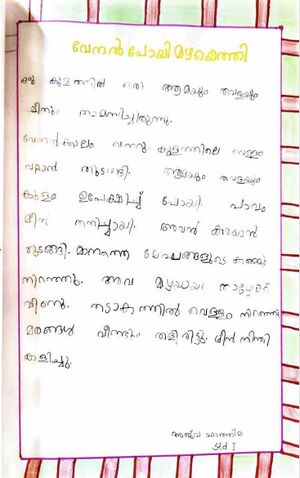 വേനൽ പോയി മഴയെത്തി
ഒരു കുളത്തിൽ ഒരു ആമയും തവളയും
മീനും താമസിച്ചിരുന്നു.
വേനൽക്കാലം വന്നു. കുളത്തിലെ വെള്ളം
വറ്റാൻ തുടങ്ങി. ആമയും തവളയും
കുളം ഉപേക്ഷിച്ച് പോയി. പാവം
മീൻ തനിച്ചായി. അവൻ കരയാൻ
തുടങ്ങി. മാനത്തെ മേഘങ്ങളുടെ കണ്ണു
നിറഞ്ഞു. അവ മഴയായി താഴേക്ക്
വീണു. തടാകത്തിൽ വെള്ളം നിറഞ്ഞു
മരങ്ങൾ വീണ്ടും തളിരിട്ടു. മീൻ നീന്തി
കളിച്ചു.
ഫാത്തിമ
Std I